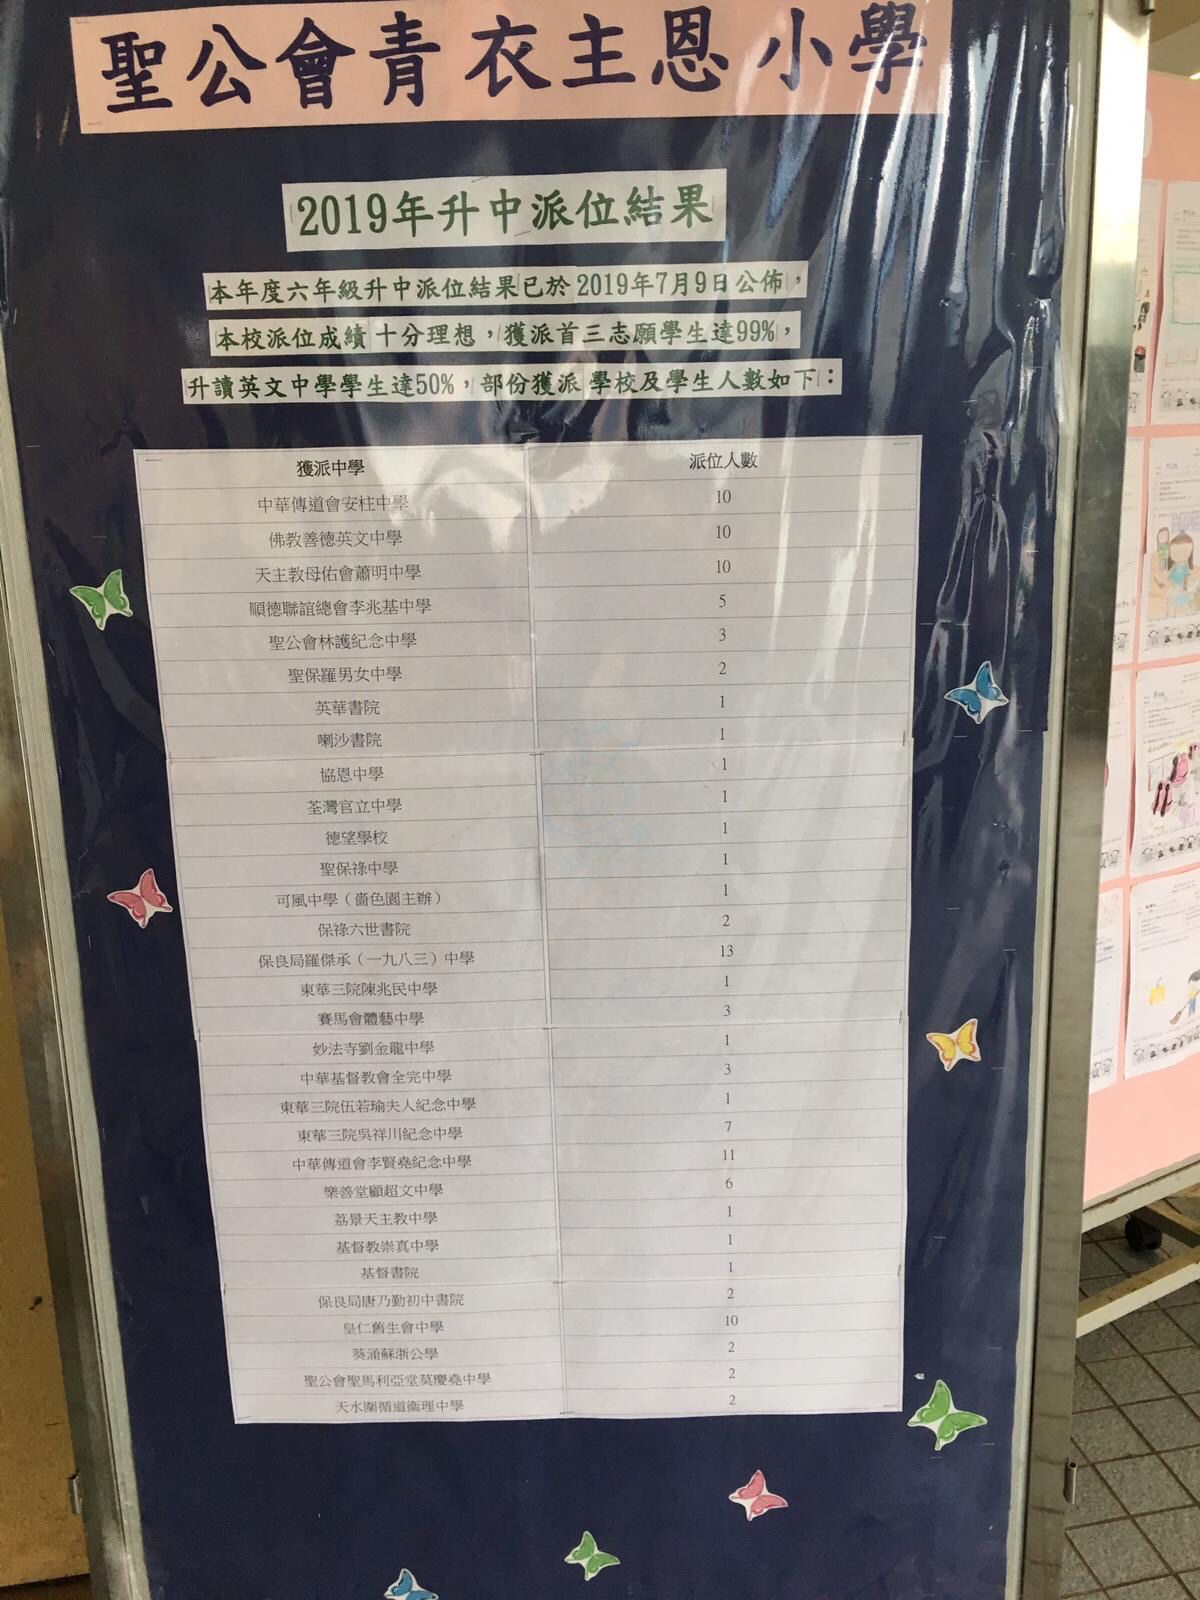 聖公會青衣主恩小學
2019年升中派位結果
本年度六年級升中派位結果已於2019年7月9日公佈，
本校派位成績十分理想，獲派首三志願學生達99%，
升讀英文中學學生達50%，部份獲派學校及學生人數如下：
獲派中學 派位人數
中華傳道會安柱中學 10
佛教善德英文中學 10
天主教母佑會蕭明中學 10
順德聯誼總會李兆基中學 5
聖公會林護紀念中學 3
聖保羅男女中學 2
英華書院 1
喇沙書院 1
協恩中學 1
荃灣官立中學 1
德望學校 1
聖保祿中學 1
可風中學（嗇色園主辦） 1
保祿六世書院 2
保良局羅傑承（一九八三）中學 13
東華三院陳兆民中學 1
賽馬會體藝中學 3
妙法寺劉金龍中學 1
中華基督教會全完中學 3
東華三院伍若瑜夫人紀念中學 1
東華三院吳祥川紀念中學 7
中華傳道會李賢堯紀念中學 11
樂善堂顧超文中學 6
荔景天主教中學 1
基督教崇真中學 1
基督書院 1
保良局唐乃勤初中書院 2
皇仁舊生會中學 10
葵涌蘇浙公學 2
聖公會聖馬利亞堂莫慶堯中學 2
天水圍循道衞理中學 2